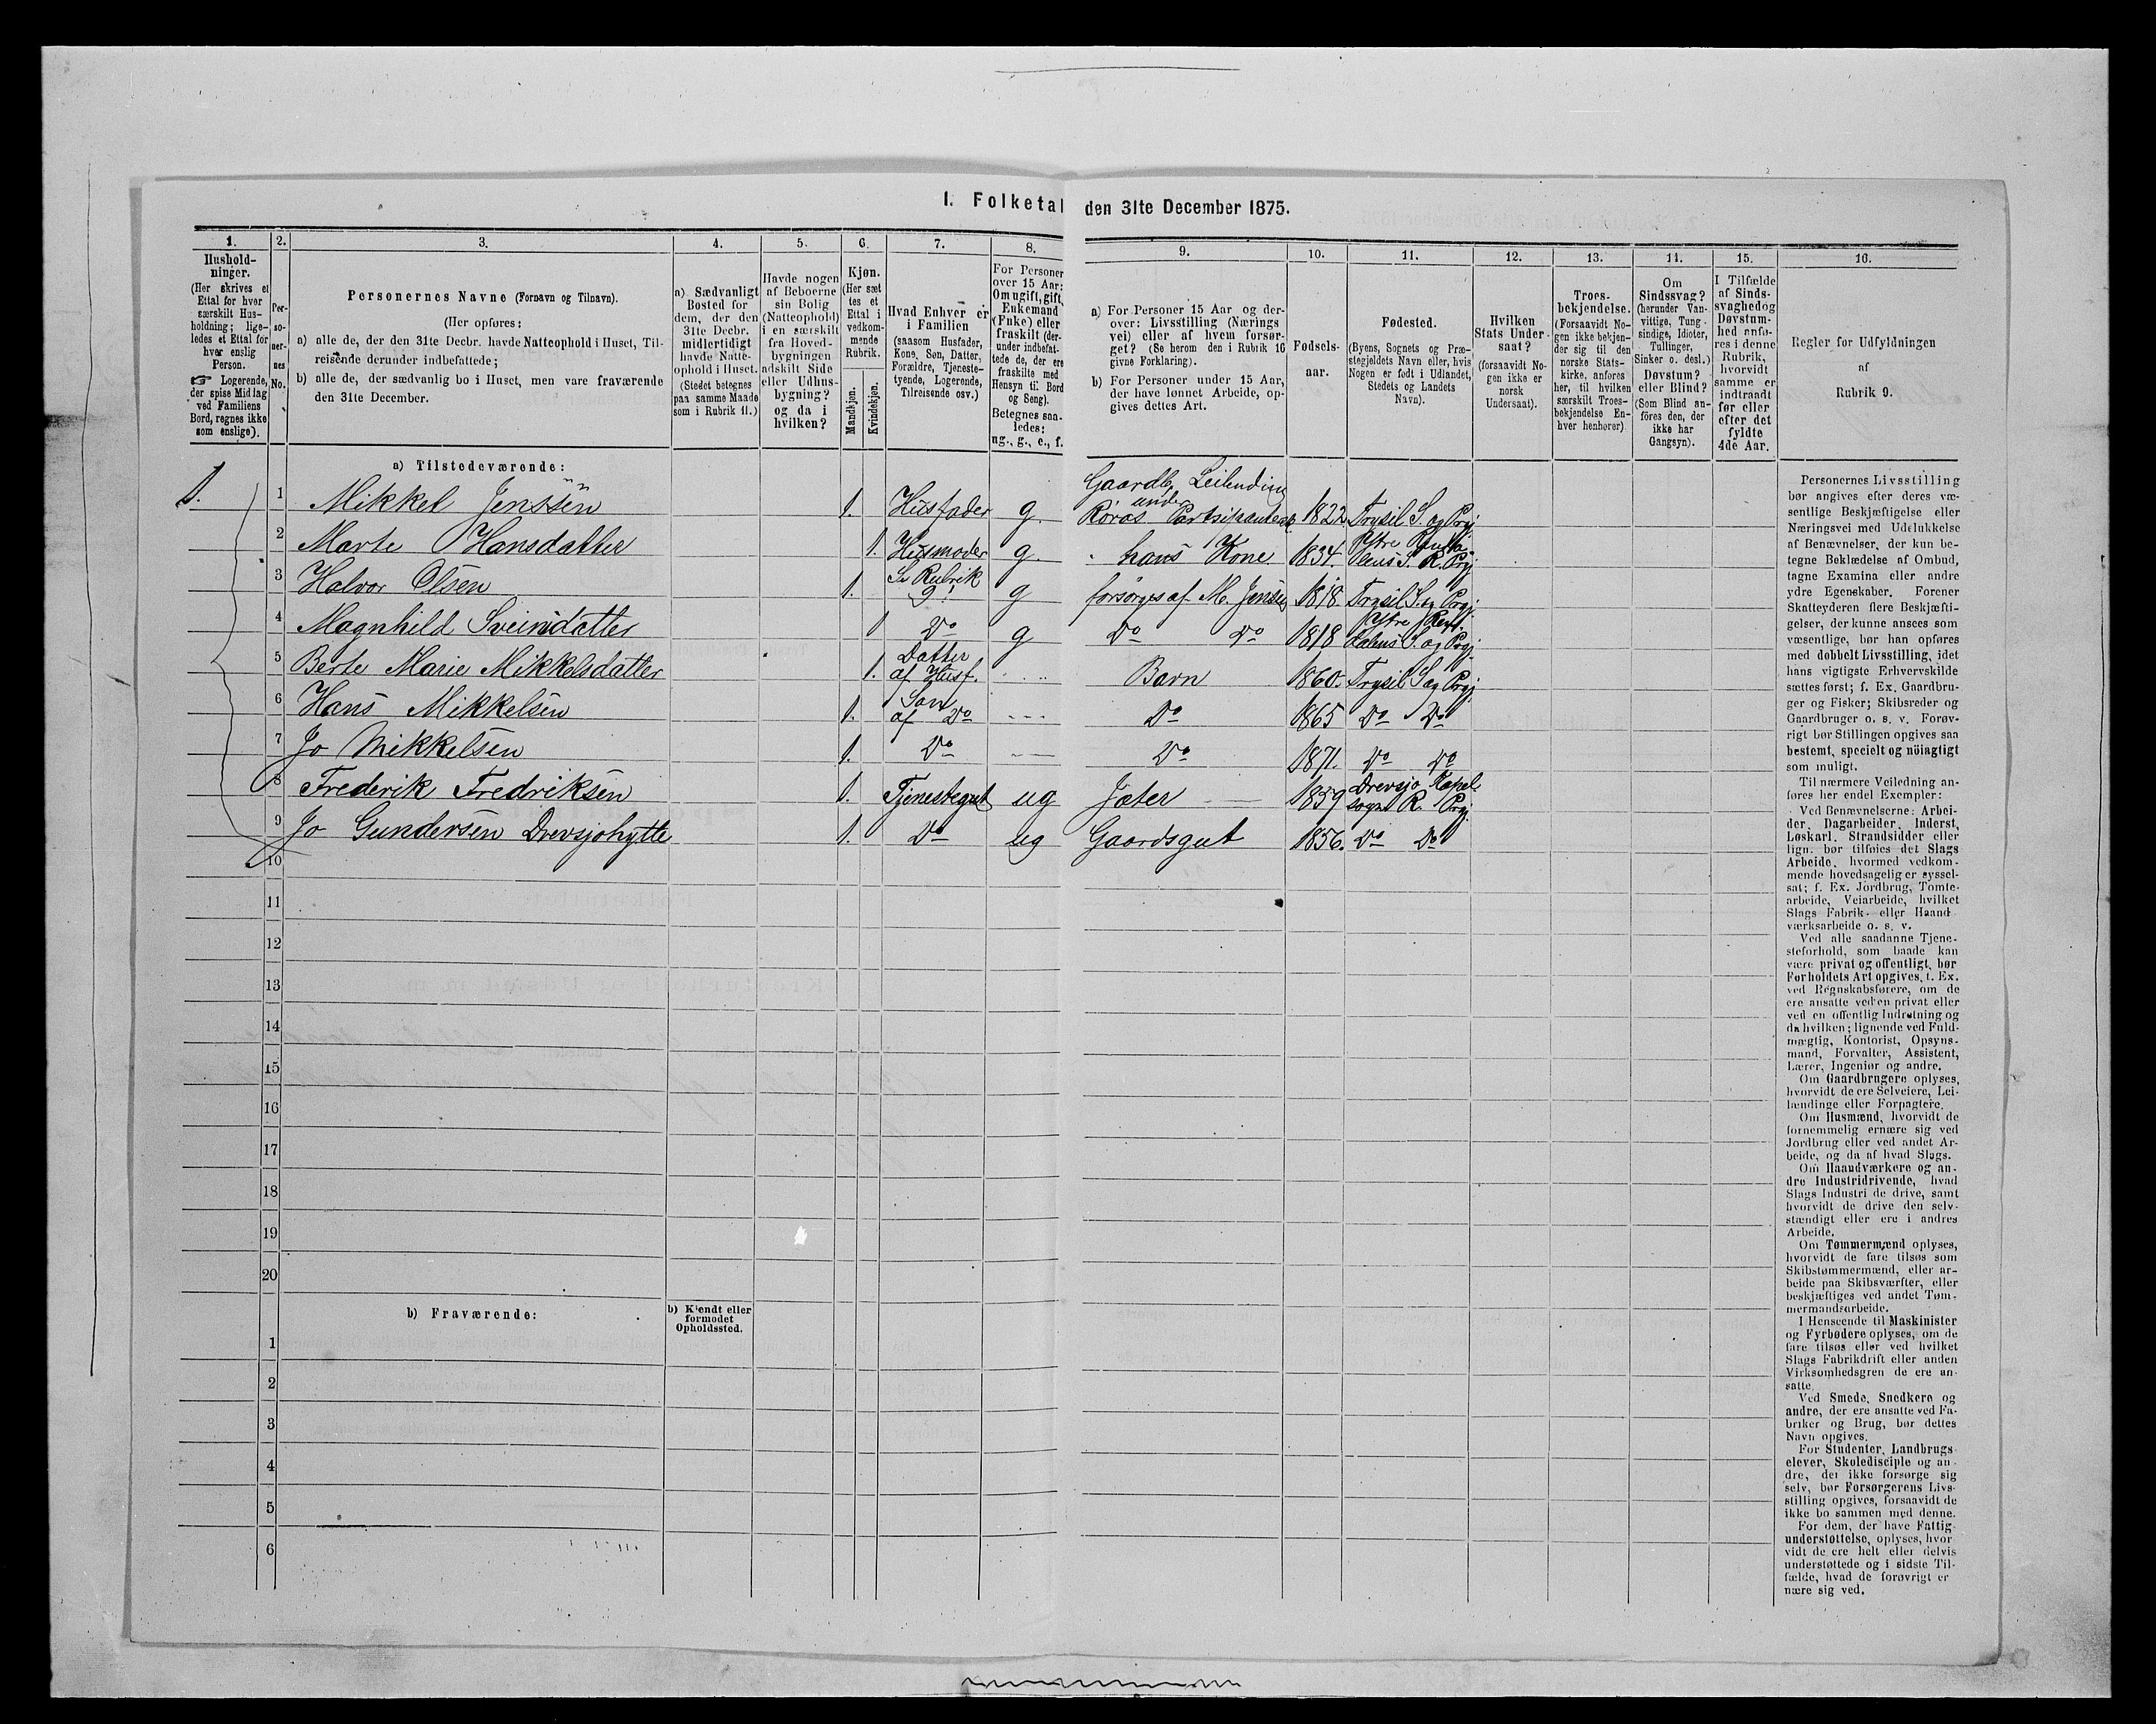 I. Folketal den 31te December 1875.
1.
Hushold-
ninger.
(Her skrives et
Ettal for hver
særskilt Hus-
holdning; lige-
ledes et Ettal for
hver enslig
Person.
☞ Logerende,
der spise Middag
ved Familiens
Bord, regnes ikke
som enslige).
2.
Per-
so-
ner-
nes
No.
3.
Personernes Navne (Fornavn og Tilnavn).
(Her opføres:
a) alle de, der den 31te Decbr. havde Natteophold i Huset, Til-
reisende derunder indbefattede;
b) alle de, der sædvanlig bo i Huset, men vare fraværende
den 31te December.
4.
a) Sædvanligt
Bosted for
dem, der den
31te Decbr.
midlertidigt
havde Natte-
ophold i Huset.
(Stedet betegnes
paa samme Maade
som i Rubrik 11.)
5.
Havde nogen
af Beboerne
sin Bolig
(Natteophold)
i en særskilt
fra Hoved-
bygningen
adskilt Side
eller Udhus-
bygning?
og da i
hvilken?
6.
Kjøn.
(Her sæt
tes et
Ettal i
vedkom-
mende
Rubrik.
Mandkjøn.
Kvindekjøn.
7.
Hvad Enhver er
i Familien
(saasom Husfader,
Kone, Søn, Datter,
Forældre, Tjeneste-
tyende, Logerende,
Tilreisende osv.)
8.
For Personer
over 15 Aar:
Om ugift, gift,
Enkemand
(Enke) eller
fraskilt (der-
under indbefat-
tede de, der ere
fraskilte med
Hensyn til Bord
og Seng).
Betegnes saa-
ledes:
ug., g., e., f.
9.
a) For Personer 15 Aar og der-
over: Livsstilling (Nærings
vei) eller af hvem forsør-
get? (Se herom den i Rubrik 16
givne Forklaring).
b) For Personer under 15 Aar,
der have lønnet Arbeide, op-
gives dettes Art.
10.
Fødsels-
aar.
11.
Fødested.
(Byens, Sognets og Præ-
stegjeldets Navn eller, hvis
Nogen er født i Udlandet,
Stedets og Landets
Navn).
12.
Hvilken
Stats Under-
saat?
(forsaavidt No-
gen ikke er
norsk
Undersaat).
13.
Troes-
bekjendelse.
(Forsaavidt No-
gen ikke bekjen-
der sig til den
norske Stats-
kirke, anføres
her, til hvilken
særskilt Troes-
bekjendelse En-
hver henhører)
14.
Om
Sindssvag?
(herunder Van-
vittige, Tung-
sindige, Idioter,
Tullinger,
Sinker o. desl.)
Døvstum?
eller Blind?
(Som Blind an-
føres den, der
ikke har
Gangsyn).
15.
I Tilfælde
af Sinds-
svaghed og
Døvstum-
hed anfø-
res i denne
Rubrik,
hvorvidt
samme er
indtraadt
før eller
efter det
fyldte
4de Aar.
16.
Regler for Udfyldningen
af
Rubrik 9.
a) Tilstedeværende:
1. 1 Mikkel Jenssen 1. Husfader g. Gaardb. Leilending under Røros 1822 Trysil S. og Prgj
2 Marte Hansdatter 1. Husmoder g. hans Kone 1834. Ytre S. R. Prgj
3 Halvor Olsen 1. Se Rubrik 9! g forsørges af M. Jensen 1818. Trysil S. og Prgj
4 Magnhild Sveinsdatter 1 Do g Do Do 1818 Ytre S. og Prgj
5 Berte Marie Mikkelsdatter 1. Datter af Husf. Barn 1860. Trysil S og Prgj
6 Hans Mikkelsen 1. Søn af Do Do 1865 Do Do
7 Jo Mikkelsen 1. Do Do 1871. Do Do
8 Frederik Fredriksen 1. Tjenestegut ug Jæter 1859 Drevsjo Kapel sogn R. Prgj.
9 Jo Gundersen Drevsjohytte 1. Do ug Gaardsgut 1856. Do Do
10
11
12
13
14
15
16
17
18
19
20
b) Fraværende:
b) Kjendt eller
formodet
Opholdssted.
1
2
3
4
5
6
Personernes Livsstilling
bør angives efter deres væ-
sentlige Beskjæftigelse eller
Næringsvei med Udelukkelse
af Benævnelser, der kun be-
tegne Beklædelse af Ombud,
tagne Examina eller andre
ydre Egenskaber. Forener
Skatteyderen flere Beskjæfti-
gelser, der kunne ansees som
væsentlige, bør han opføres
med dobbelt Livsstilling, idet
hans vigtigste Erhvervskilde
sættes først; f. Ex. Gaardbru-
ger og Fisker; Skibsreder og
Gaardbruger o. s. v. Forøv-
rigt bør Stillingen opgives saa
bestemt, specielt og nöiagtigt
som muligt.
Til nærmere Veiledning an-
føres her endel Exempler:
Ved Benævnelserne: Arbei-
der, Dagarbeider, Inderst,
Løskarl, Strandsidder eller
lign. bør tilføies det Slags
Arbeide, hvormed vedkom-
mende hovedsagelig er syssel-
sat; f. Ex. Jordbrug, Tomte-
arbeide, Veiarbeide, hvilket
Slags Fabrik- eller Haand-
værksarbeide o. s. v.
Ved alle saadanne Tjene-
steforhold, som baade kan
være privat og offentligt, bør
Forholdets Art opgives, t. Ex.
ved Regnskabsførere, om de
ere ansatte ved en privat eller
ved en offentlig Indretning og
da hvilken; lignende ved Fuld-
mægtig, Kontorist, Opsyns-
mand, Forvalter, Assistent,
Lærer, Ingeniør og andre.
Om Gaardbrugere oplyses,
hvorvidt de ere Selveiere, Lei-
lændinge eller Forpagtere.
Om Husmænd, hvorvidt de
fornemmelig ernære sig ved
Jordbrug eller ved andet Ar-
beide, og da af hvad Slags.
Om Haandværkere og an-
dre Industridrivende, hvad
Slags Industri de drive, samt
hvorvidt de drive den selv-
stændigt eller ere i andres
Arbeide.
Om Tømmermænd oplyses,
hvorvidt de fare tilsøs som
Skibstømmermænd, eller ar-
beide paa Skibsværfter, eller
beskjæftiges ved andet Tøm-
mermandsarbeide.
I Henseende til Maskinister
og Fyrbødere oplyses, om de
fare tilsøs eller ved hvilket
Slags Fabrikdrift eller anden
Virksomhedsgren de ere an-
satte.
Ved Smede, Snedkere og
andre, der ere ansatte ved Fa-
briker og Brug, bør dettes
Navn opgives.
For Studenter, Landbrugs
elever, Skoledisciple og an-
dre, der ikke forsørge sig
selv, bør Forsørgerens Livs-
stilling opgives, forsaavidt de
ikke bo sammen med denne.
For dem, der have Fattig-
understøttelse, oplyses, hvor-
vidt de ere helt eller delvis
understøttede og i sidste Til-
fælde, hvad de forøvrigt er-
nære sig ved.